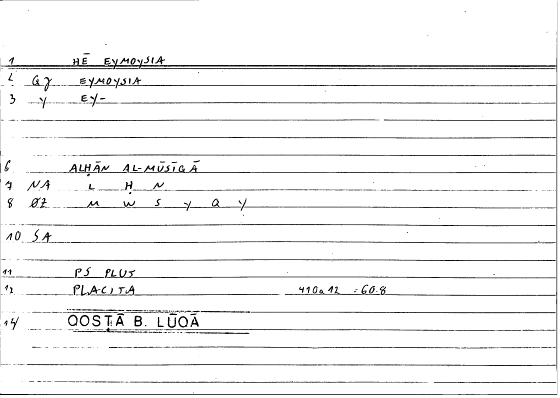 1 HĒ EYMOYSIA
2 QY EYMOYSIA
3 Y EY-
6 ALḤĀN AL-MŪSĪQĀ
7 NA L Ḥ N
8 ØZ M W S Y Q Y
10 SA
11 PS PLUT
12 PLACITA 410a12 -60.8
14 QOSṬĀ B. LŪQĀ